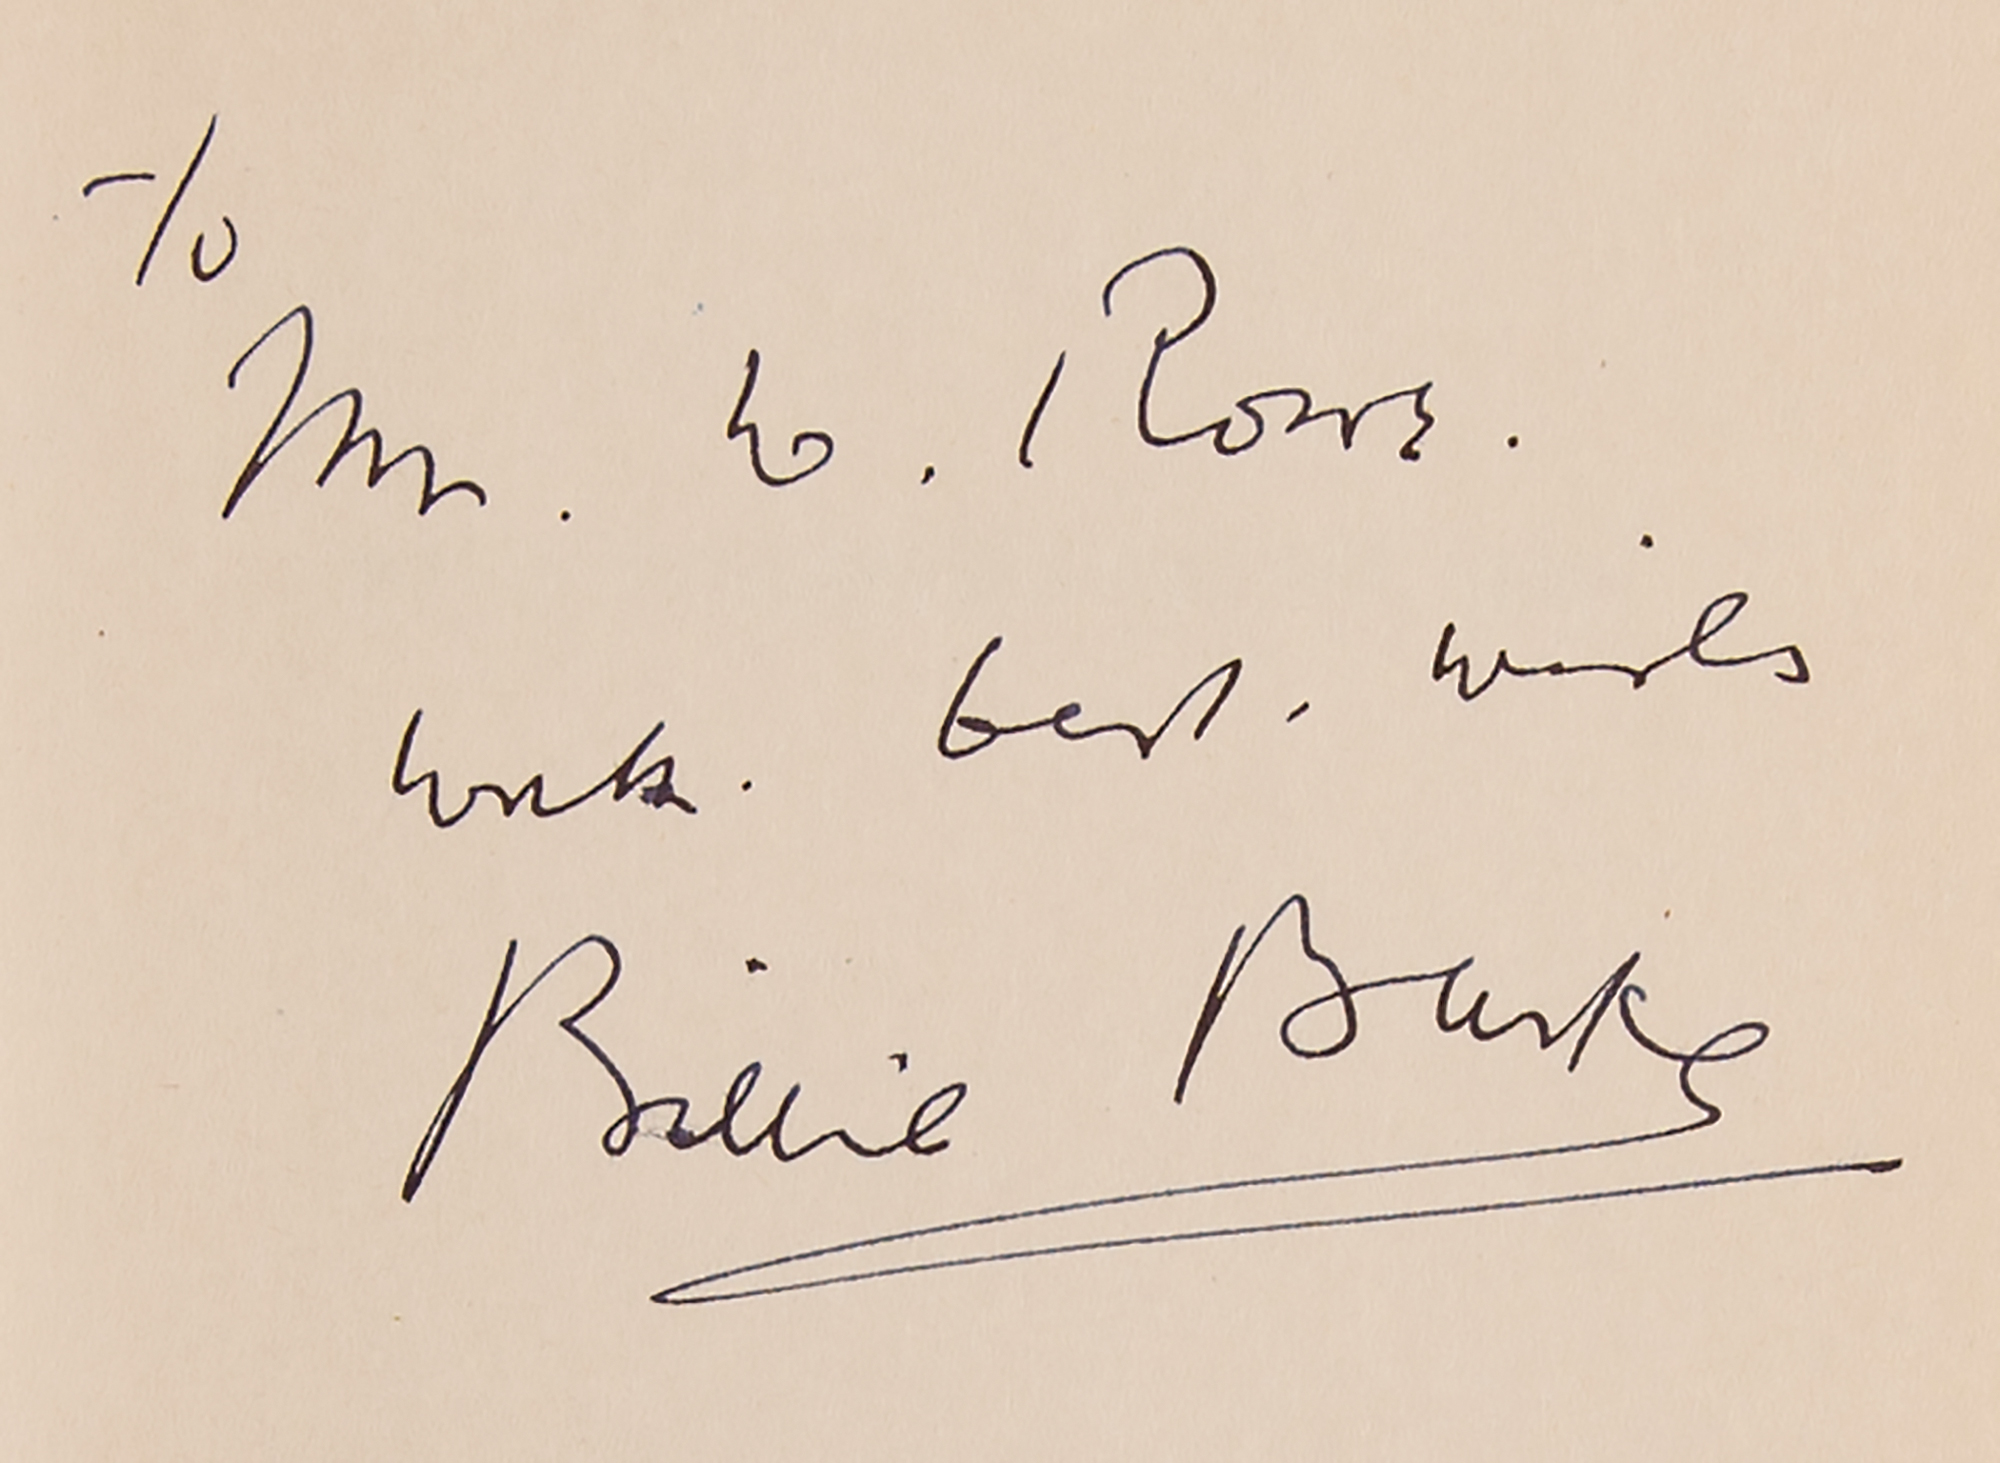 To
Mr. W. Rowe.
with. best. wishes
Billie Burke